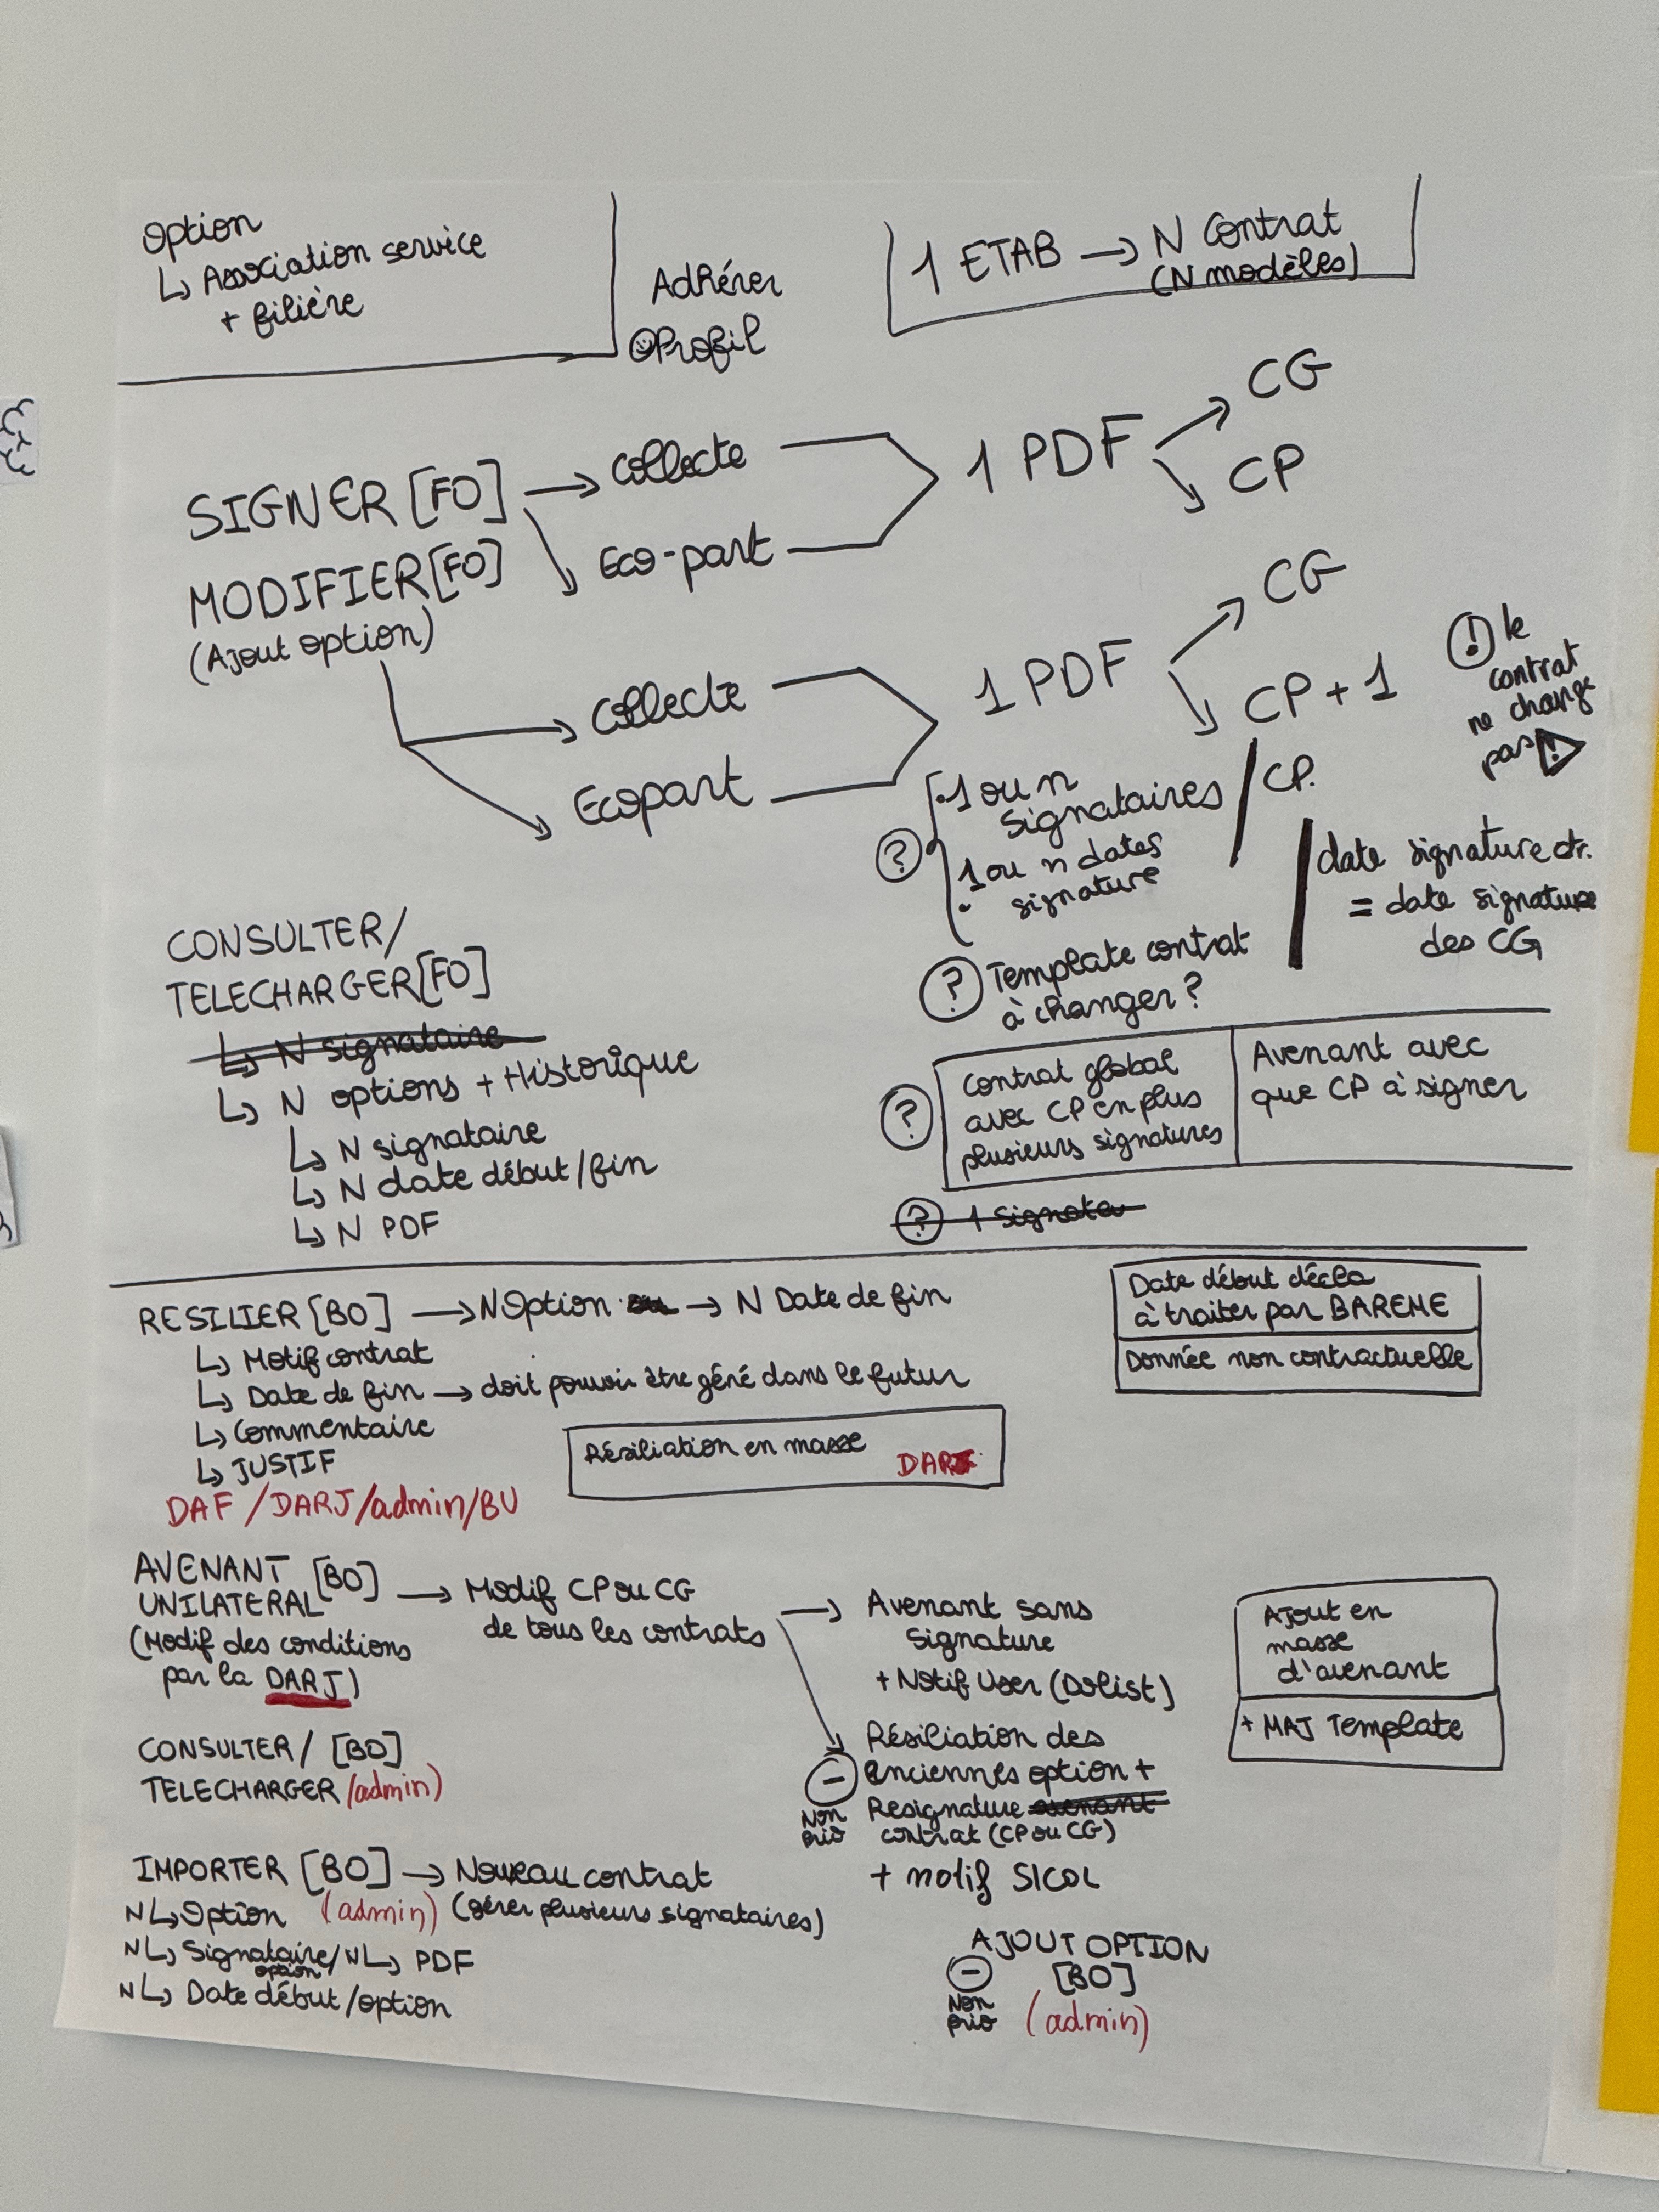 Option
↳ Association service
+ filière
Adhérer
Profil
1 ETAB → N Contrat
(N modèles)
SIGNER [FO] → Collecte
Eco-part
1 PDF
CG
CP
MODIFIER [FO]
(Ajout option)
Collecte
Ecopart
1 PDF
CG
CP + 1
! le
contrat
ne change
pas !
? • 1 ou n
signataires / CP.
• 1 ou n dates
signature
date signature ctr.
= date signature
des CG
? Template contrat
à changer ?
CONSULTER/
TELECHARGER [FO]
↳ N signataire
↳ N options + Historique
↳ N signataire
↳ N date début/fin
↳ N PDF
? Contrat global
avec CP en plus
plusieurs signatures
Avenant avec
que CP à signer
? 1 Signata
RESILIER [BO] → N Option → N Date de fin
↳ Motif contrat
↳ Date de fin → doit pouvoir être géré dans le futur
↳ Commentaire
↳ JUSTIF
DAF / DARJ/admin/BU
Résiliation en masse
DARJ
Date début décla
à traiter par BAREME
Donnée non contractuelle
AVENANT
UNILATERAL [BO] → Modif CP ou CG
de tous les contrats
(Modif des conditions
par la DARJ)
→ Avenant sans
signature
+ Notif User (Dolist)
Résiliation des
anciennes option +
Resignature avenant
contrat (CP ou CG)
+ motif SICOL
– Non
prio
Ajout en
masse
d'avenant
+ MAJ Template
CONSULTER/ [BO]
TELECHARGER /admin)
IMPORTER [BO] → Nouveau contrat
(admin) (gérer plusieurs signataires)
N ↳ Option
N ↳ Signataire/ N ↳ PDF
option
N ↳ Date début/option
AJOUT OPTION
[BO]
– Non
prio
(admin)